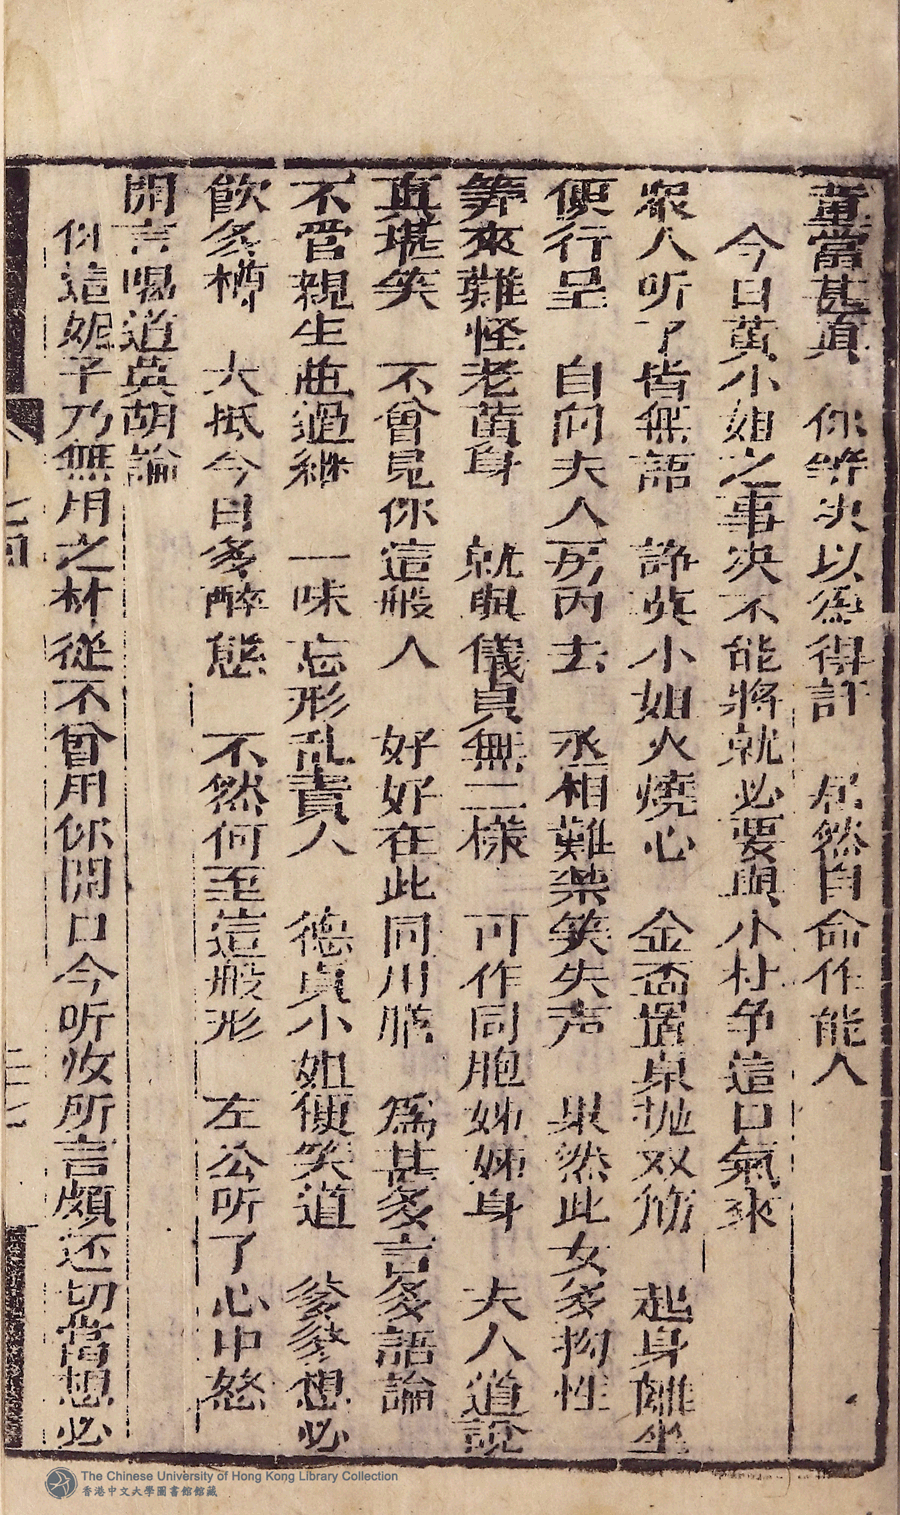 董當甚真　你等决以為得計　居然自命作能人
今日黃小姐之事决不能將就必要與小材争這口氣來
眾人听了皆無語　諍英小姐火燒心　金盃擐桌抛双筋　起身離坐
便行呈　自问夫人房丙去　丞相難禁笑失声　果然此女多拗性
筭來難怪老黃身　就與儀貞無二樣　可作同胞姊姊身　夫人道說
真堪笑　不曾見你這般人　好好在此同川膳　為甚多言多語論
不管親生幷過継　一味忘形乱責人　德貞小姐便笑道　爹爹想必
飲多樽　大抵今日多醉態　不然何至這般形　左公听了心中怒
開言喝道英胡論
你這妮子乃無用之材從不曾用你開口今听汝所言頗还切當想必
二七
The Chinese University of Hong Kong Library Collection
香港中文大學圖書館館藏